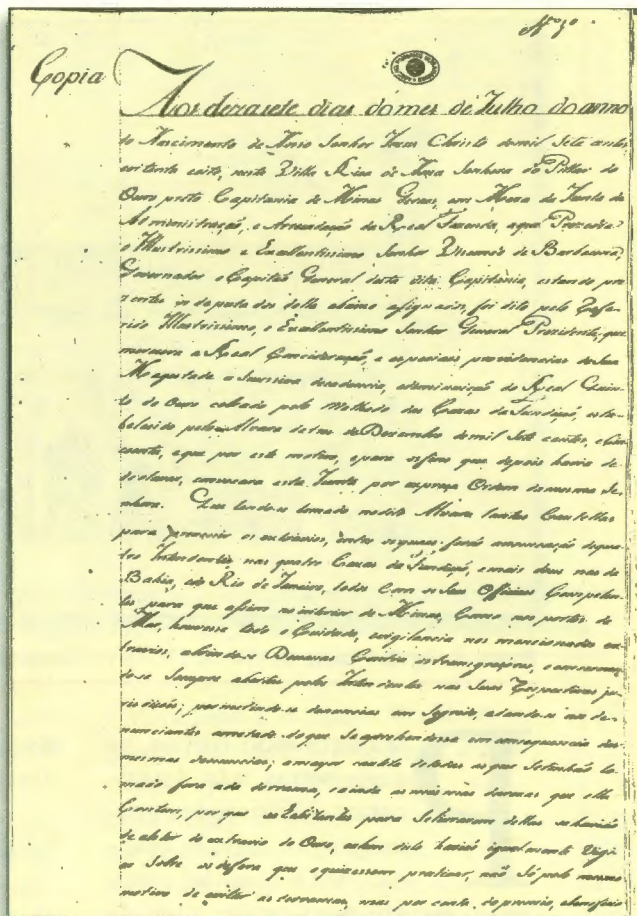 Nº 5º
Copia
Aos dezasete dias do mes de Julho do anno
do Nascimento de Noso Senhor Jesus Christo de mil Sete centos
e oitenta e oito, nesta Villa Rica de Nosa Senhora do Pillar do
Ouro preto Capitania de Minas Geraes, em Meza da Junta da
Administração, e Arrecadação da Real Fazenda, a que Prezedia
o Illustrissimo e Excellentissimo Senhor Visconde de Barbacena,
Governador e Capitaõ General desta dita Capitania, estando pre
zentes os deputados della abaixo asignados, foi dito pelo Refe
rido Illustrissimo, e Excellentissimo Senhor General Prezidente, que
merecera a Real Concideração, e especiaes providencias de Sua
Magestade a sucesiva decadencia, e deminuição do Real Quin
to do Ouro cobrado pelo Methodo das Cazas da Fundição, esta
belecido pelo Alvara de tres de Dezembro de mil Sete centos, e Cin
coenta, e que por este motivo, e para os fins que depois havia de
declarar, convocara esta Junta por expreça Ordem da mesma Se
nhora. Que tendo-se tomado no dito Alvara tantas Cautellas
para prevenir os extravios, entre as quaes foraõ a creação de qua
tro Intendentes nas quatro Cazas da Fundição, e mais dous nas da
Bahia, e do Rio de Janeiro, todos Com os Seus Officiaes Competen
tes para que asim no interior de Minas, Como nos portos de
Mar, houvese todo o Cuidado, e vigilancia nos mencionados ex
travios, abrindo-se Devasas Contra os transgresores, e conservan
do-se Sempre abertas pelos Intendentes nas Suas Respectivas ju
risdições; permetindo-se denuncias em Segredo, e dando-se aos de
nunciantes ametade do que Se aprehendesse em consequencia das
mesmas denuncias; a mayor cautella de todas as que Se tinhaõ to
mado fora a da derrama, e ainda as mesmas que elle
Contem, por que os Habitantes para Se livrarem dellas se haviaõ
de abster do extravio do Ouro, e alem disto haviaõ igualmente vigi
ar Sobre os desfora que o quizessem praticar, naõ Só pelo mesmo
motivo de evitar as derramas, mas por conta do premio, e beneficio